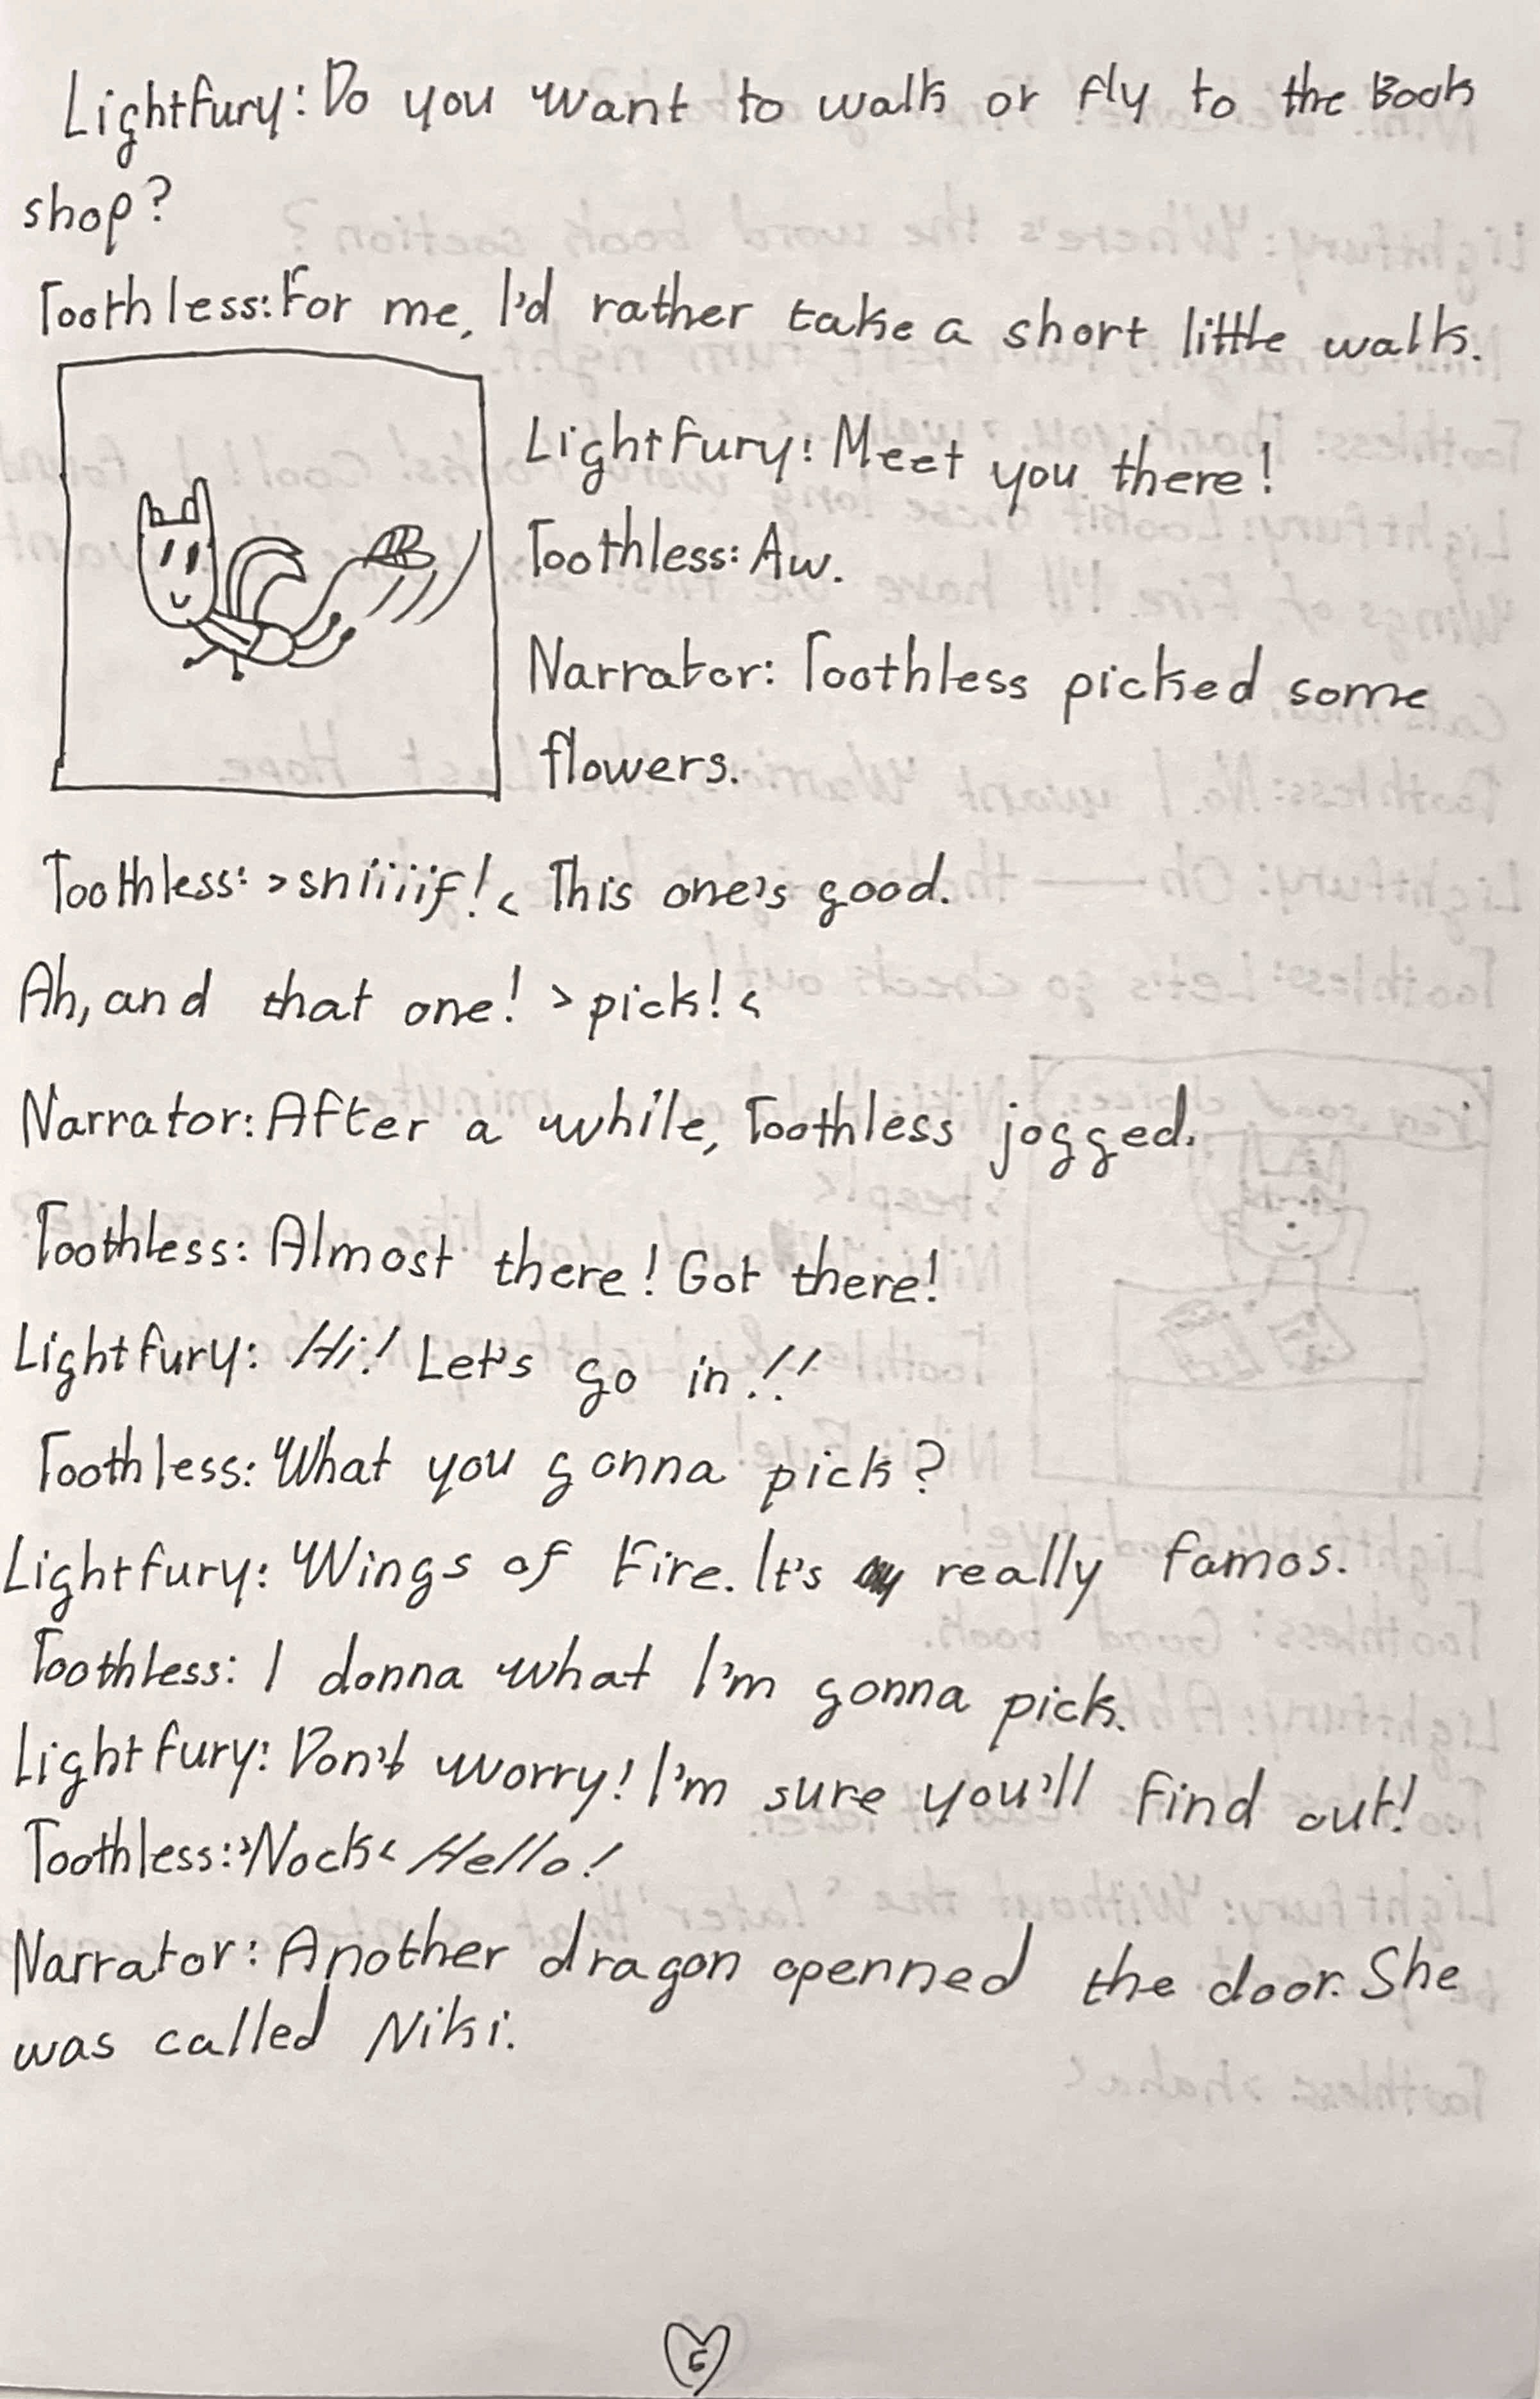 Lightfury: Do you want to walk or fly to the Book
shop?
Toothless: For me, I'd rather take a short little walk.
Lightfury: Meet you there!
Toothless: Aw.
Narrator: Toothless picked some
flowers.
Toothless: >sniiiif!< This one's good.
Ah, and that one! >pick!<
Narrator: After a while, Toothless jogged.
Toothless: Almost there! Got there!
Lightfury: Hi! Let's go in!!
Toothless: What you gonna pick?
Lightfury: Wings of Fire. It's really famos.
Toothless: I donna what I'm gonna pick.
Lightfury: Don't worry! I'm sure you'll find out!
Toothless: >Nock< Hello!
Narrator: Another dragon openned the door. She
was called Niki.